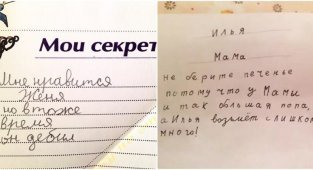 Мои секрет
Мне нравится
Женя
но в тоже
время
он дебил
Илья
Мама
не берите печенье
потому что у Мамы
и так большая попа,
а Илья возьмёт слишком
много!